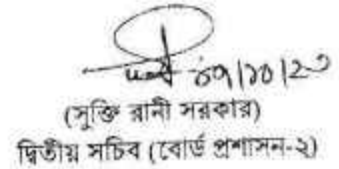 ০৭/১০/২৩
(সুক্তি রানী সরকার)
দ্বিতীয় সচিব (বোর্ড প্রশাসন-২)